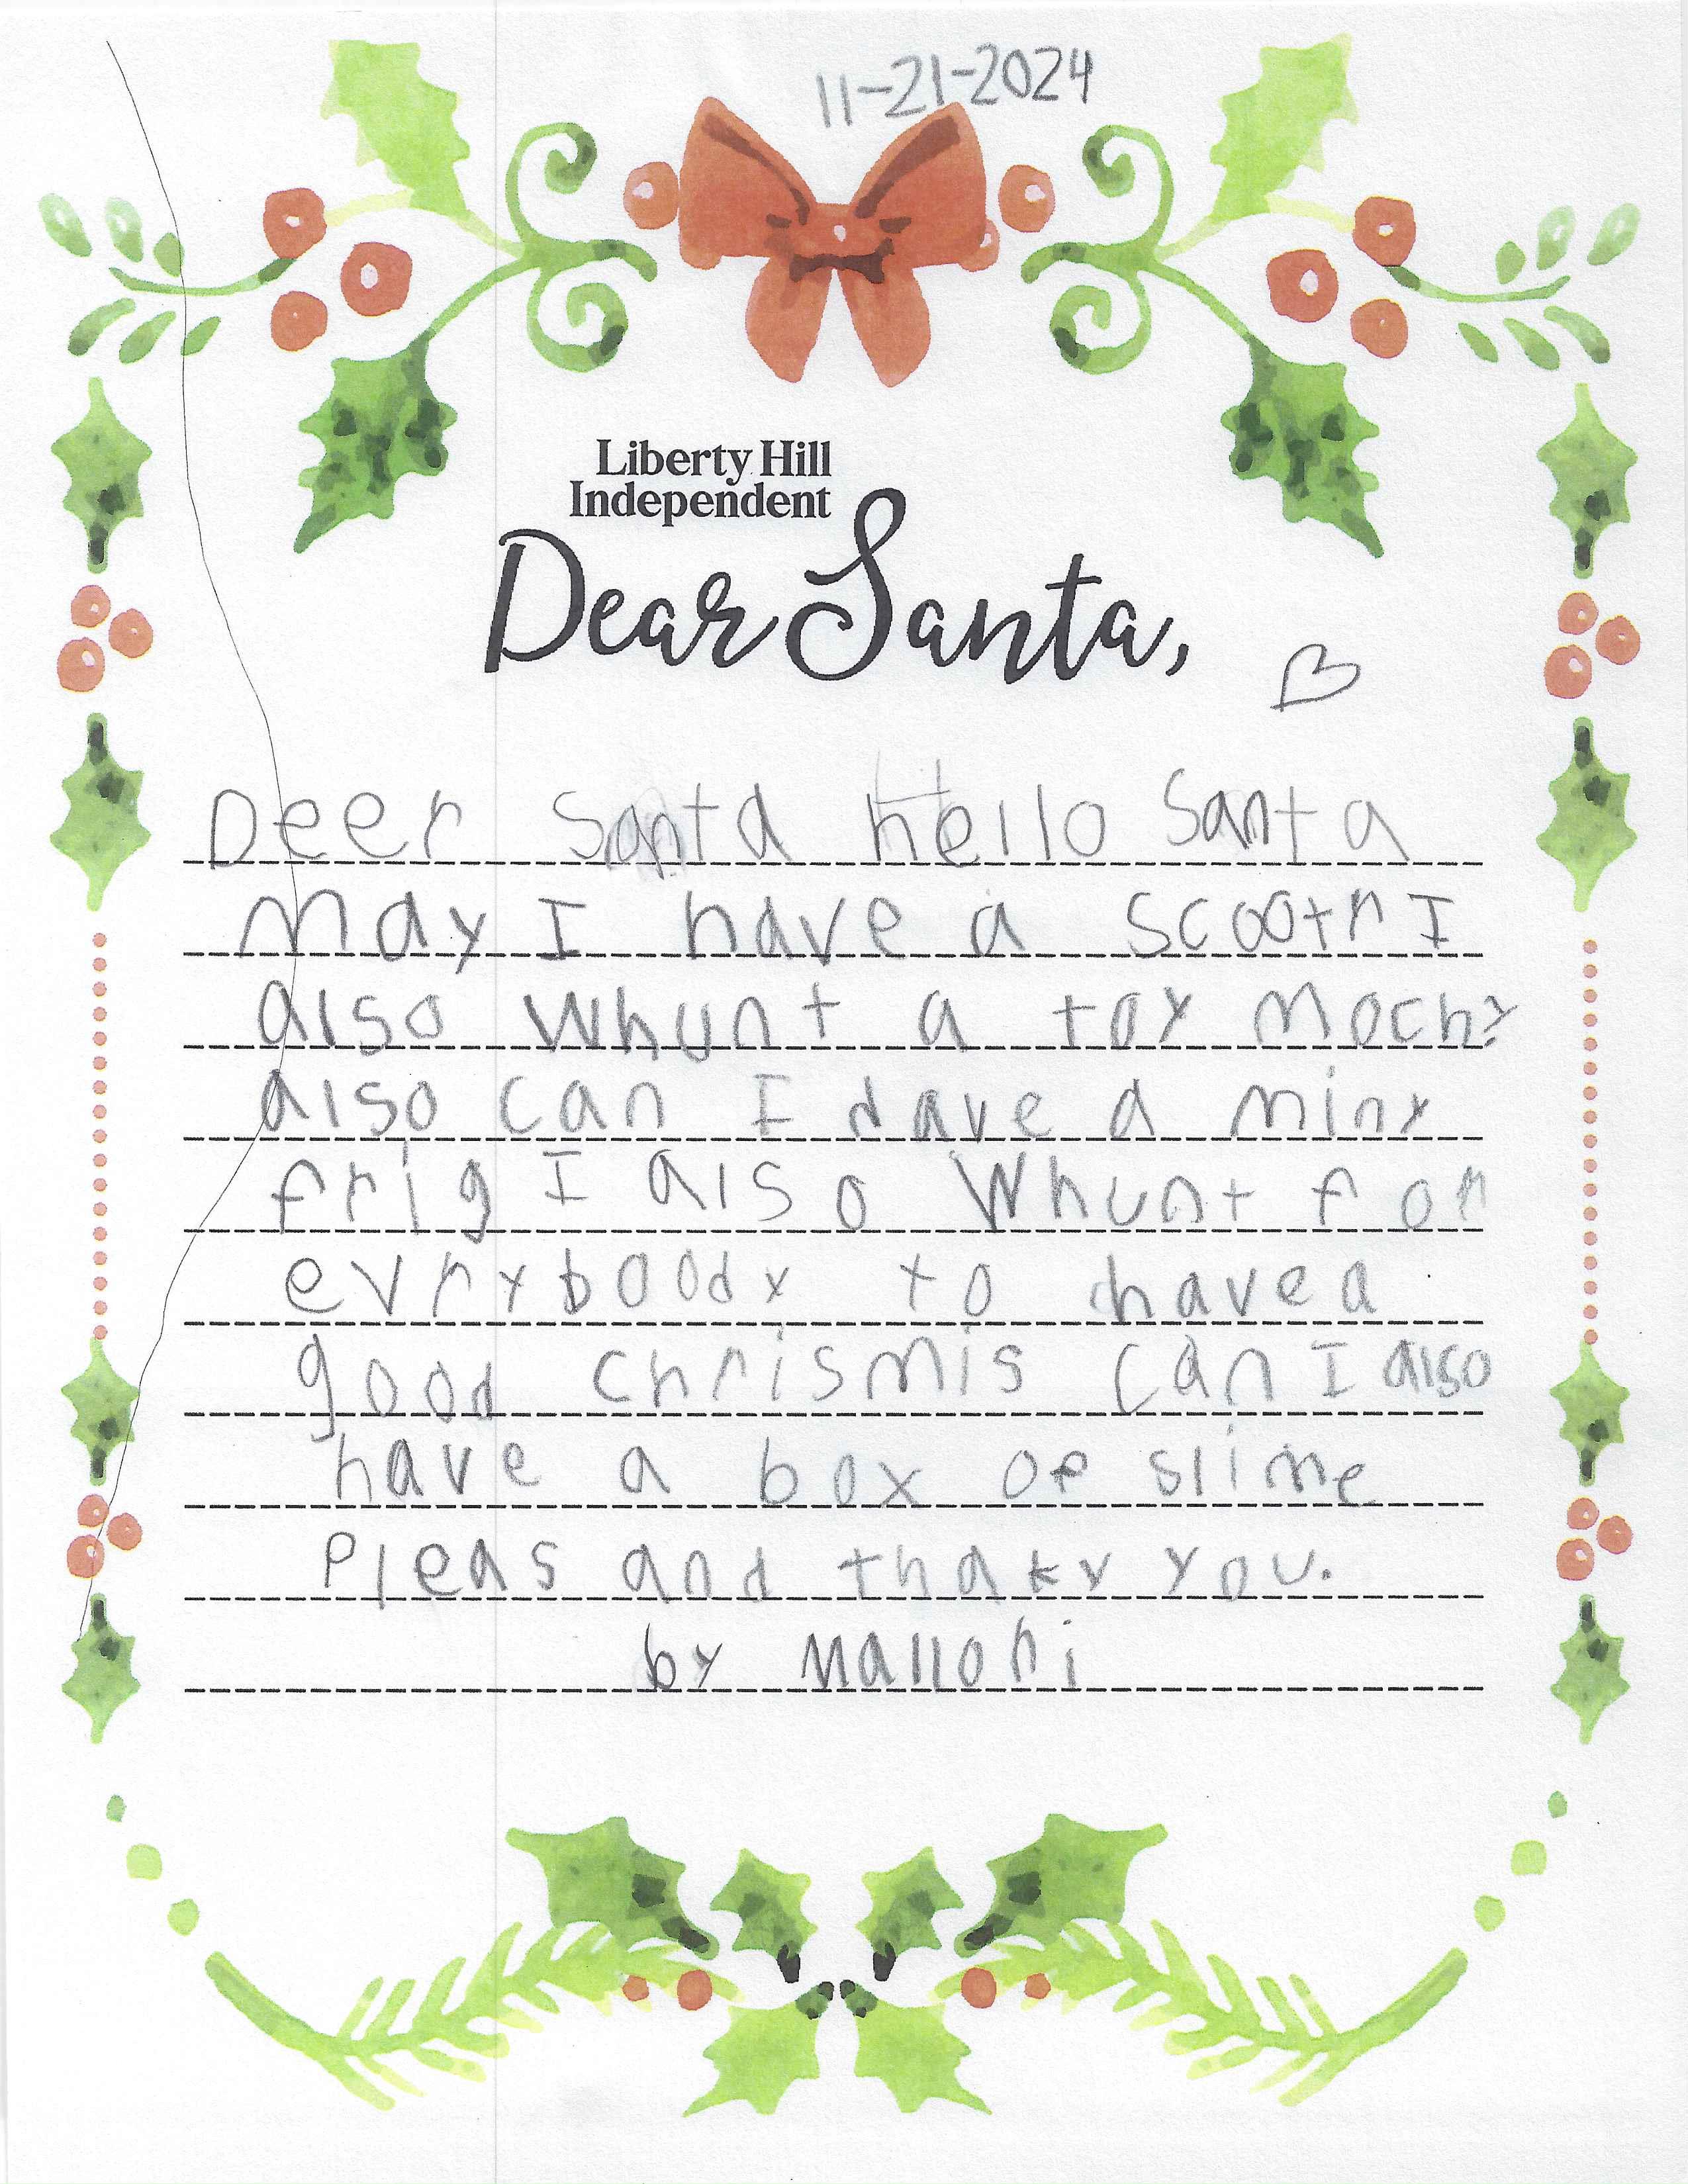 11-21-2024
Liberty Hill
Independent
Dear Santa,
Deer Santa Hello Santa
may I have a scootr I
also whunt a toy
also can I dave a miny
frig I also whunt for
evryboody to have a
good chrismis can I also
have a box of slime
Pleas and thaky you.
by Mallori